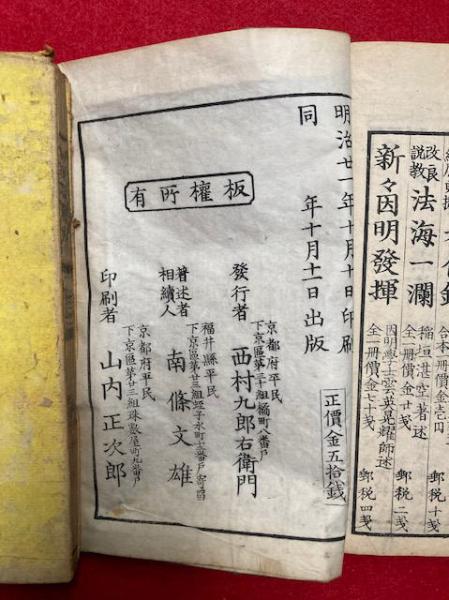 合本一冊價金壱円
改良説教 法海一瀾 稲垣湛空著述
全一冊價金廿戔 郵税二戔
新々因明發揮 因明學士雲英晃耀師述
全一冊價金七十戔 郵税四戔
郵税十戔
明治廿一年十月十日印刷
同 年十月十一日出版
正價金五拾銭
板權所有
京都府平民
下京區第三十組橘町八番戸
發行者 西村九郎右衛門
福井縣平民
著述者相續人 南條文雄
京都府平民
下京區第廿三組珠數屋町九番戸
印刷者 山内正次郎